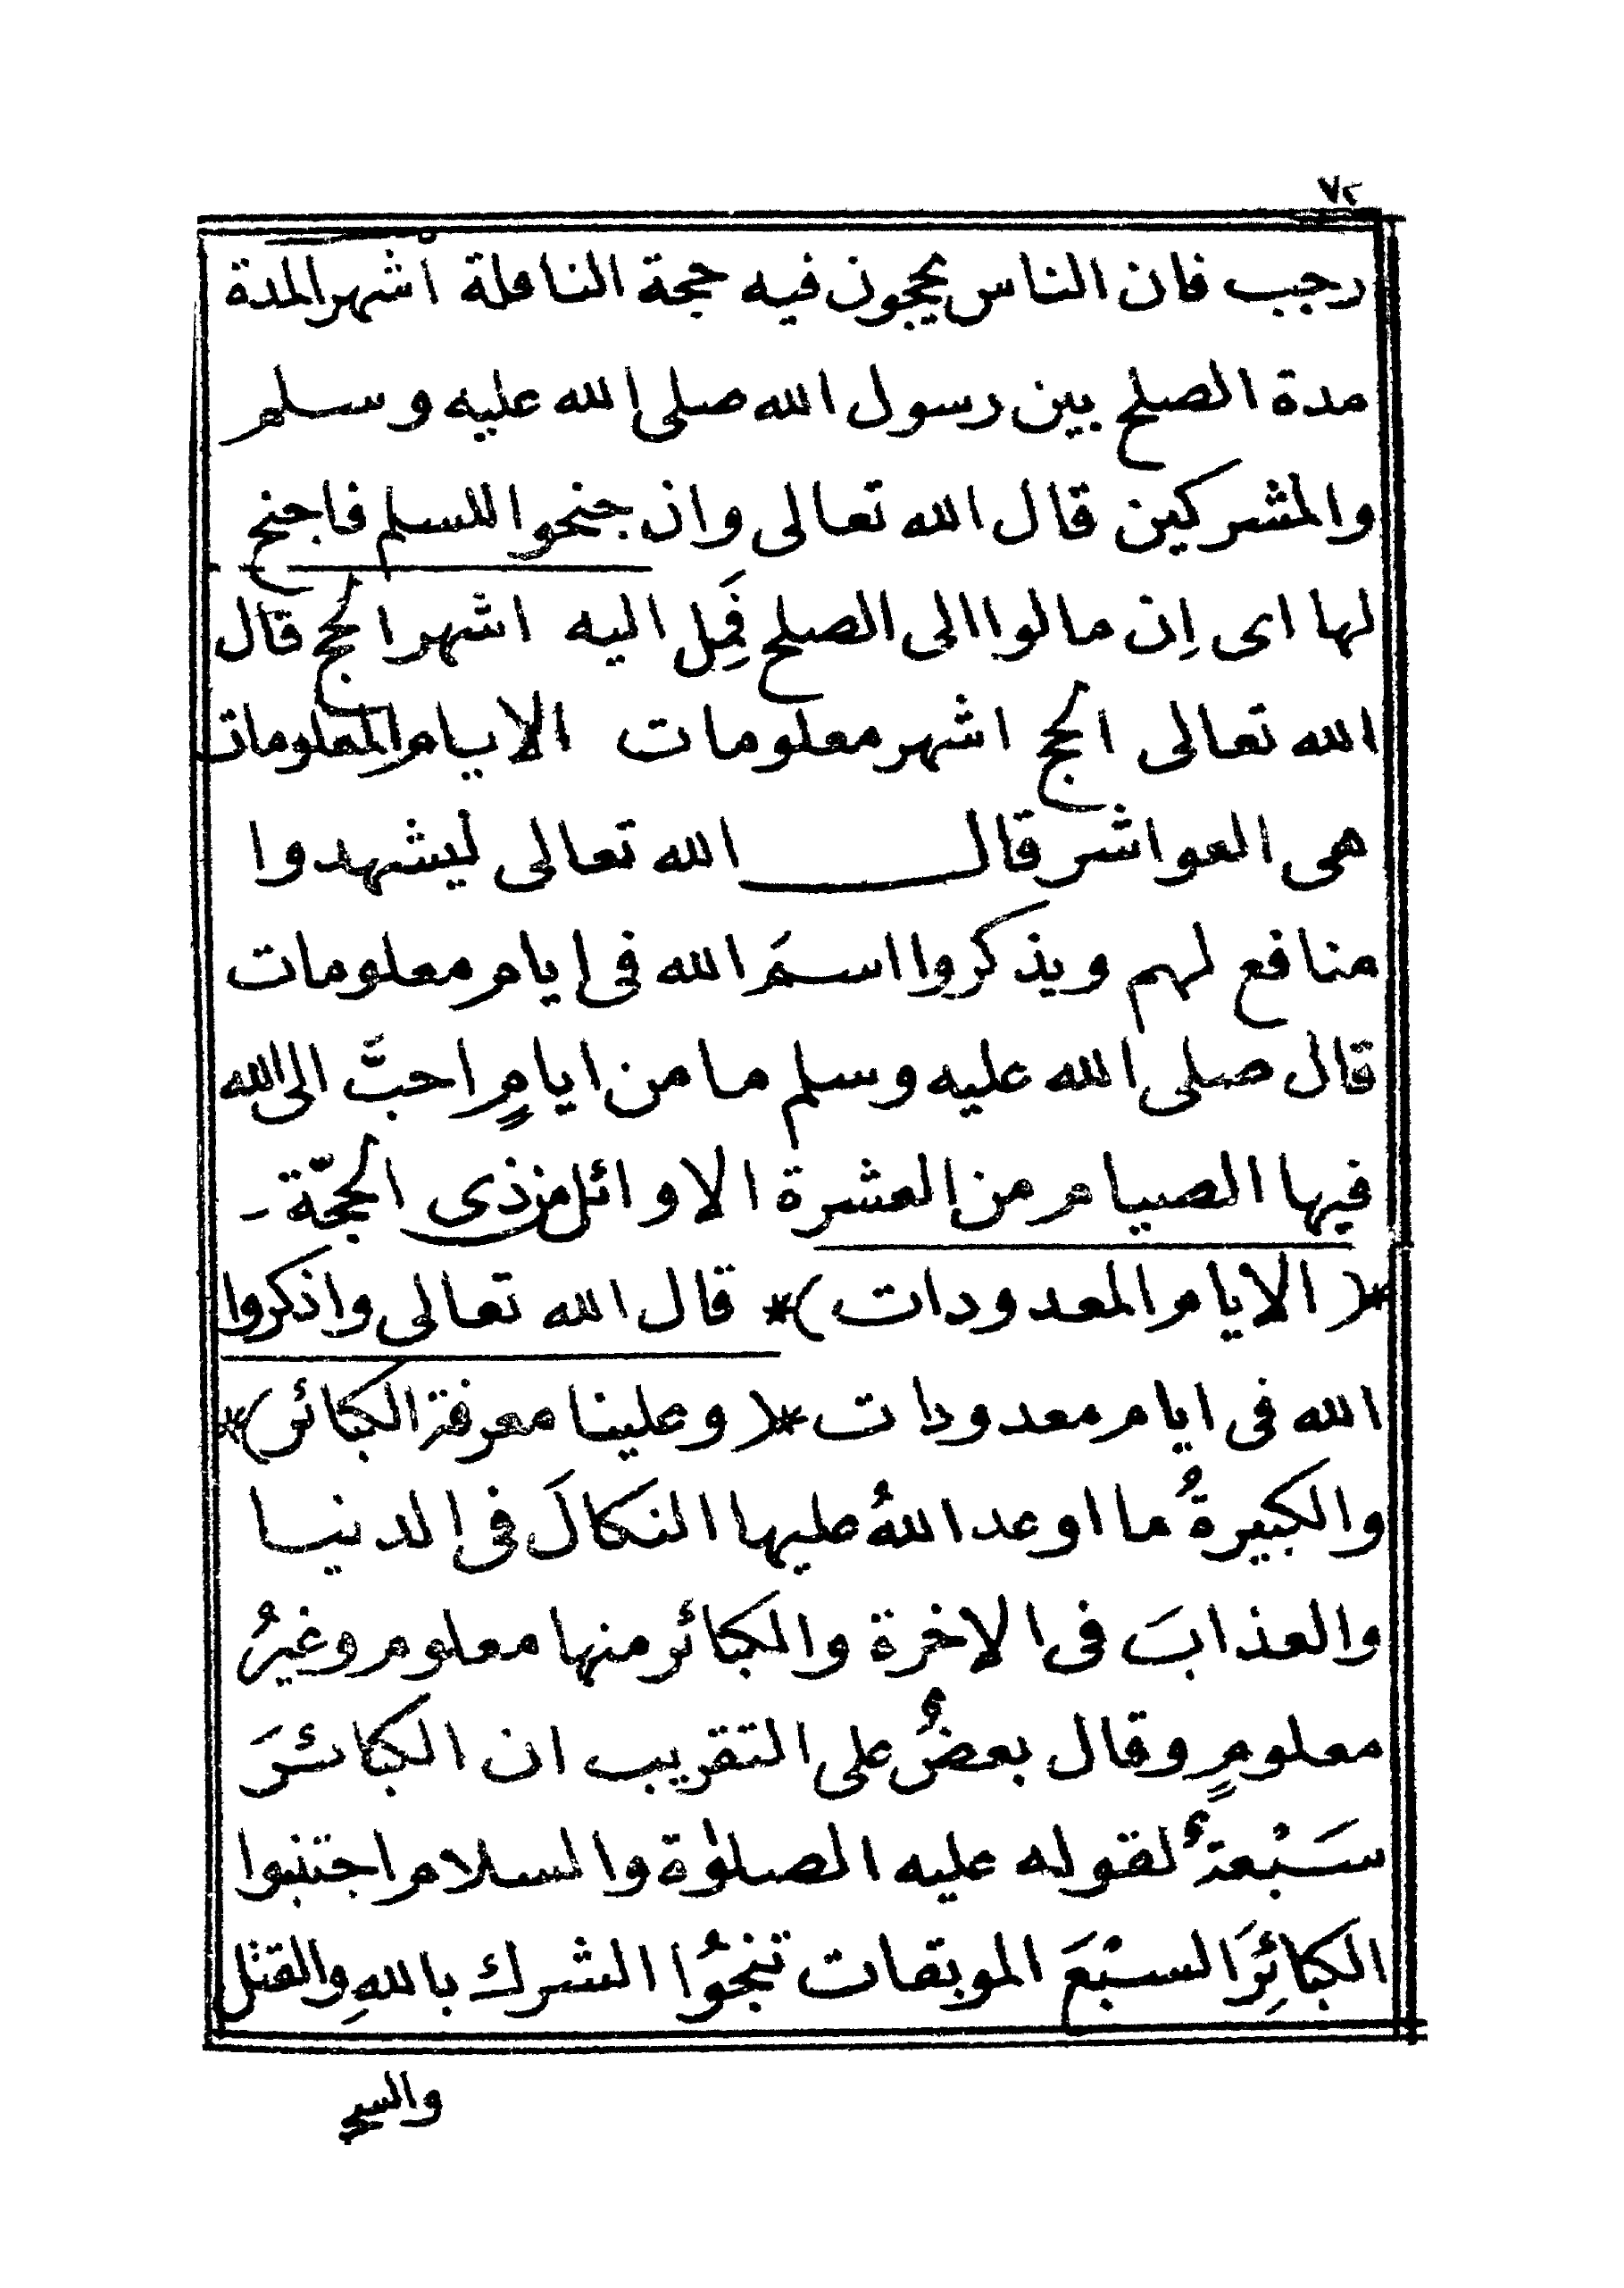 ٧٢
رجب فان الناس يحجون فيه حجة النافلة اشهر المدة
مدة الصلح بين رسول الله صلى الله عليه وسلم
والمشركين قال الله تعالى وان جنحوا للسلم فاجنح
لها اى اِن مالوا الى الصلح فَمِل اليه اشهر الحج قال
الله تعالى الحج اشهر معلومات الايام المعلومات
هى العواشر قال الله تعالى ليشهدوا
منافع لهم ويذكروا اسمَ الله فى ايام معلومات
قال صلى الله عليه وسلم ما من ايامٍ احبَّ الى الله
فيها الصيام من العشرة الاوائل من ذى الحجّة -
*( الايام المعدودات )* قال الله تعالى واذكروا
الله فى ايام معدودات *( وعلينا معرفة الكبائر )*
والكبيرةُ ما اوعد اللهُ عليها النكالَ فى الدنيا
والعذابَ فى الاخرة والكبائر منها معلوم وغيرُ
معلومٍ وقال بعضٌ على التقريب ان الكبائرَ
سَبْعةٌ لقوله عليه الصلوٰة والسلام اجتنبوا
الكبائِرَ السبْعَ الموبقات تنجُوا الشرك باللهِ والقتل
والسحـ